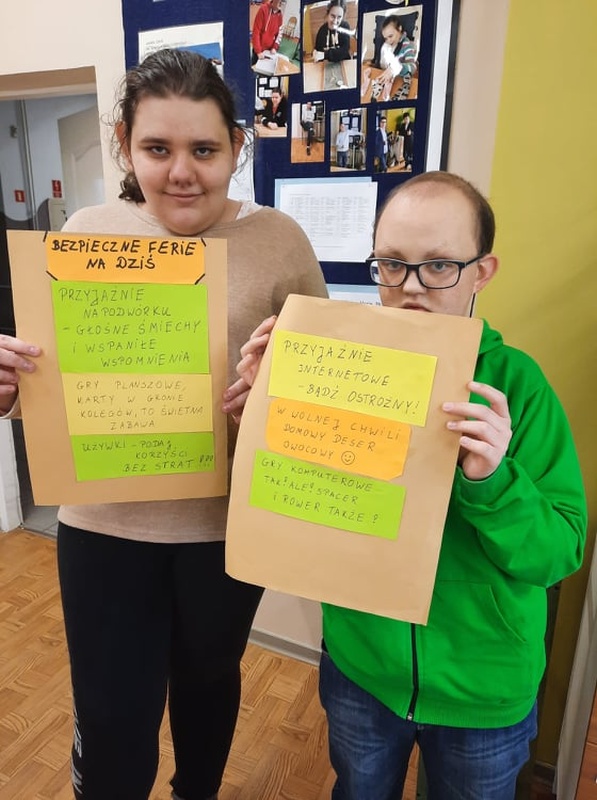 BEZPIECZNE FERIE
NA DZIŚ
PRZYJAŹNIE
NA PODWÓRKU
- GŁOŚNE ŚMIECHY
i WSPANIŁE
WSPOMNIENIA
GRY PLANSZOWE,
KARTY W GRONIE
KOLEGÓW, TO ŚWIETNA
ZABAWA
UŻYWKI - PODAJ
KORZYŚCI
BEZ STRAT !!!
PRZYJAŹNIE
INTERNETOWE
- BĄDŹ OSTROŻNY!
W WOLNEJ CHWILI
DOMOWY DESER
OWOCOWY ☺
GRY KOMPUTEROWE
TAK? ALE? SPACER
i ROWER TAKŻE ?